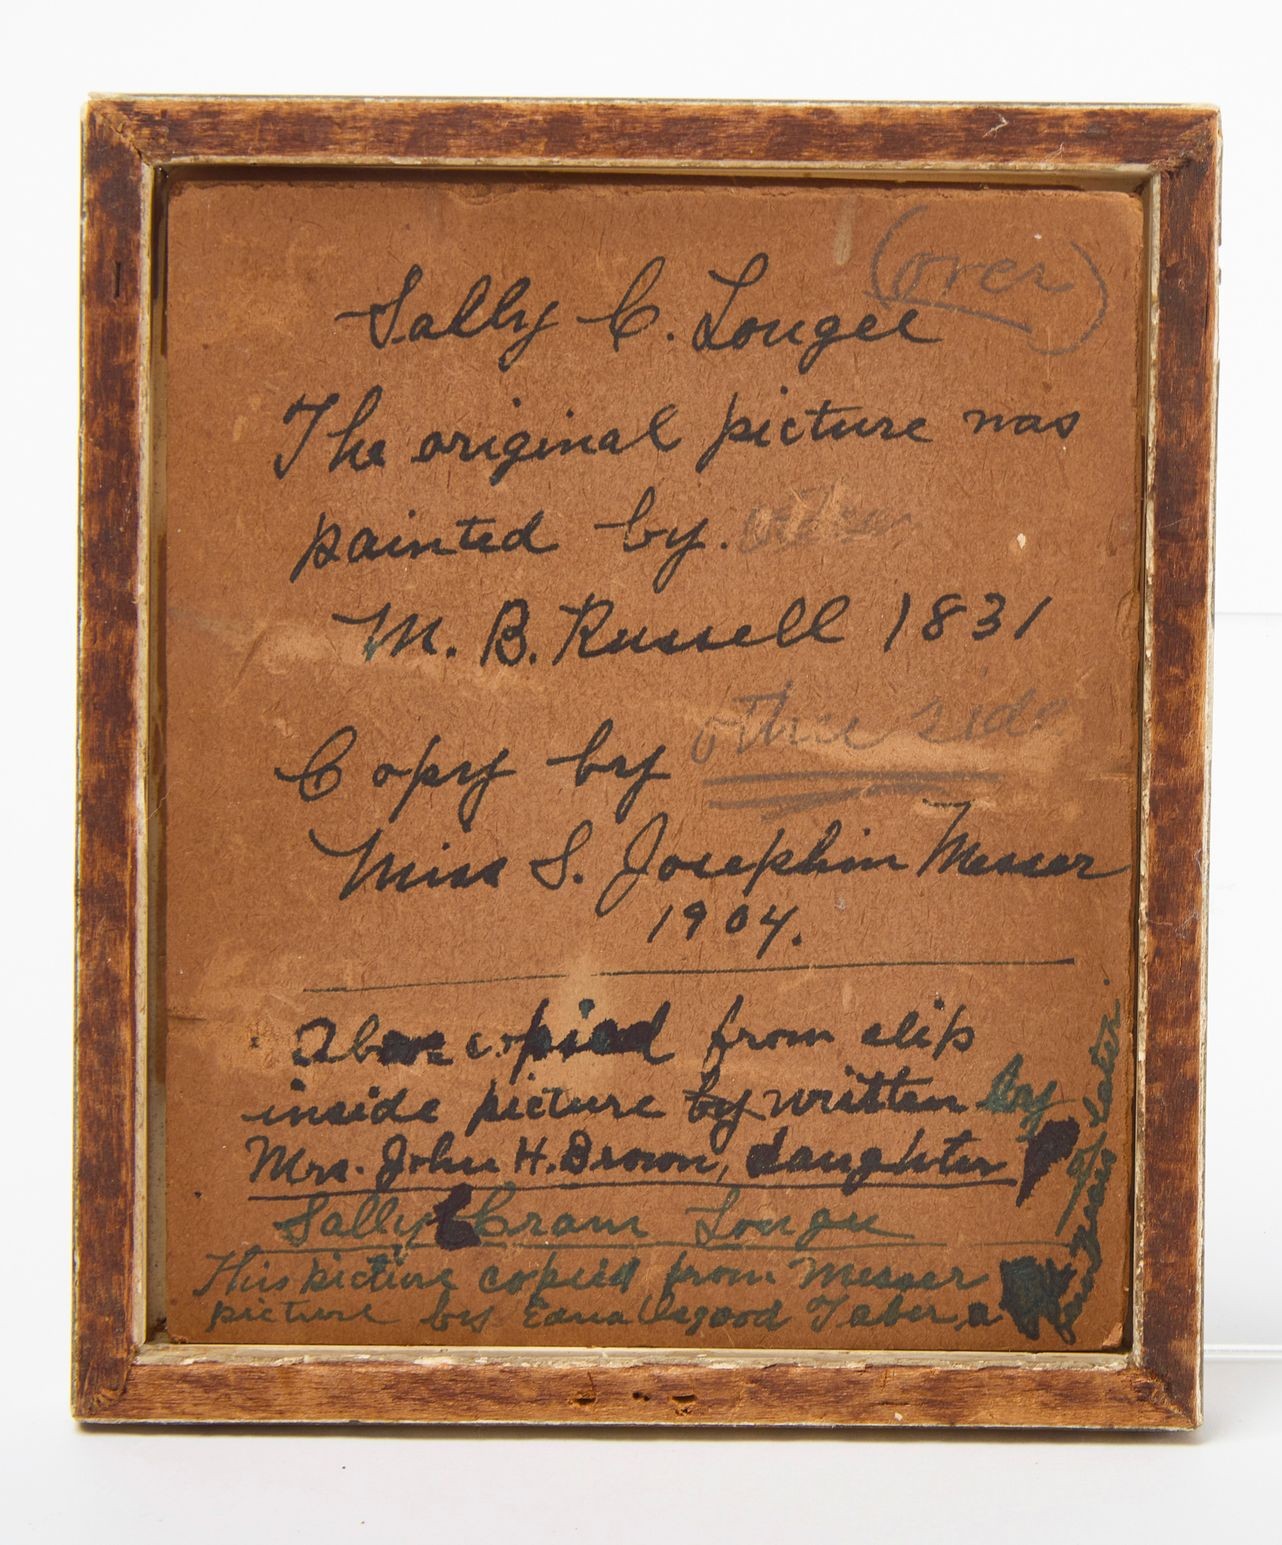 (over)
Sally C. Lougee
The original picture was
painted by.
M. B. Russell 1831
other side
Copy by
Miss S. Josephin Messer
1904.
Above copied from slip
inside picture by written by
Mrs. John H. Brown, daughter of
Sally Cram Lougee
This picture copied from Messer
picture by Edna Osgood Taber, a